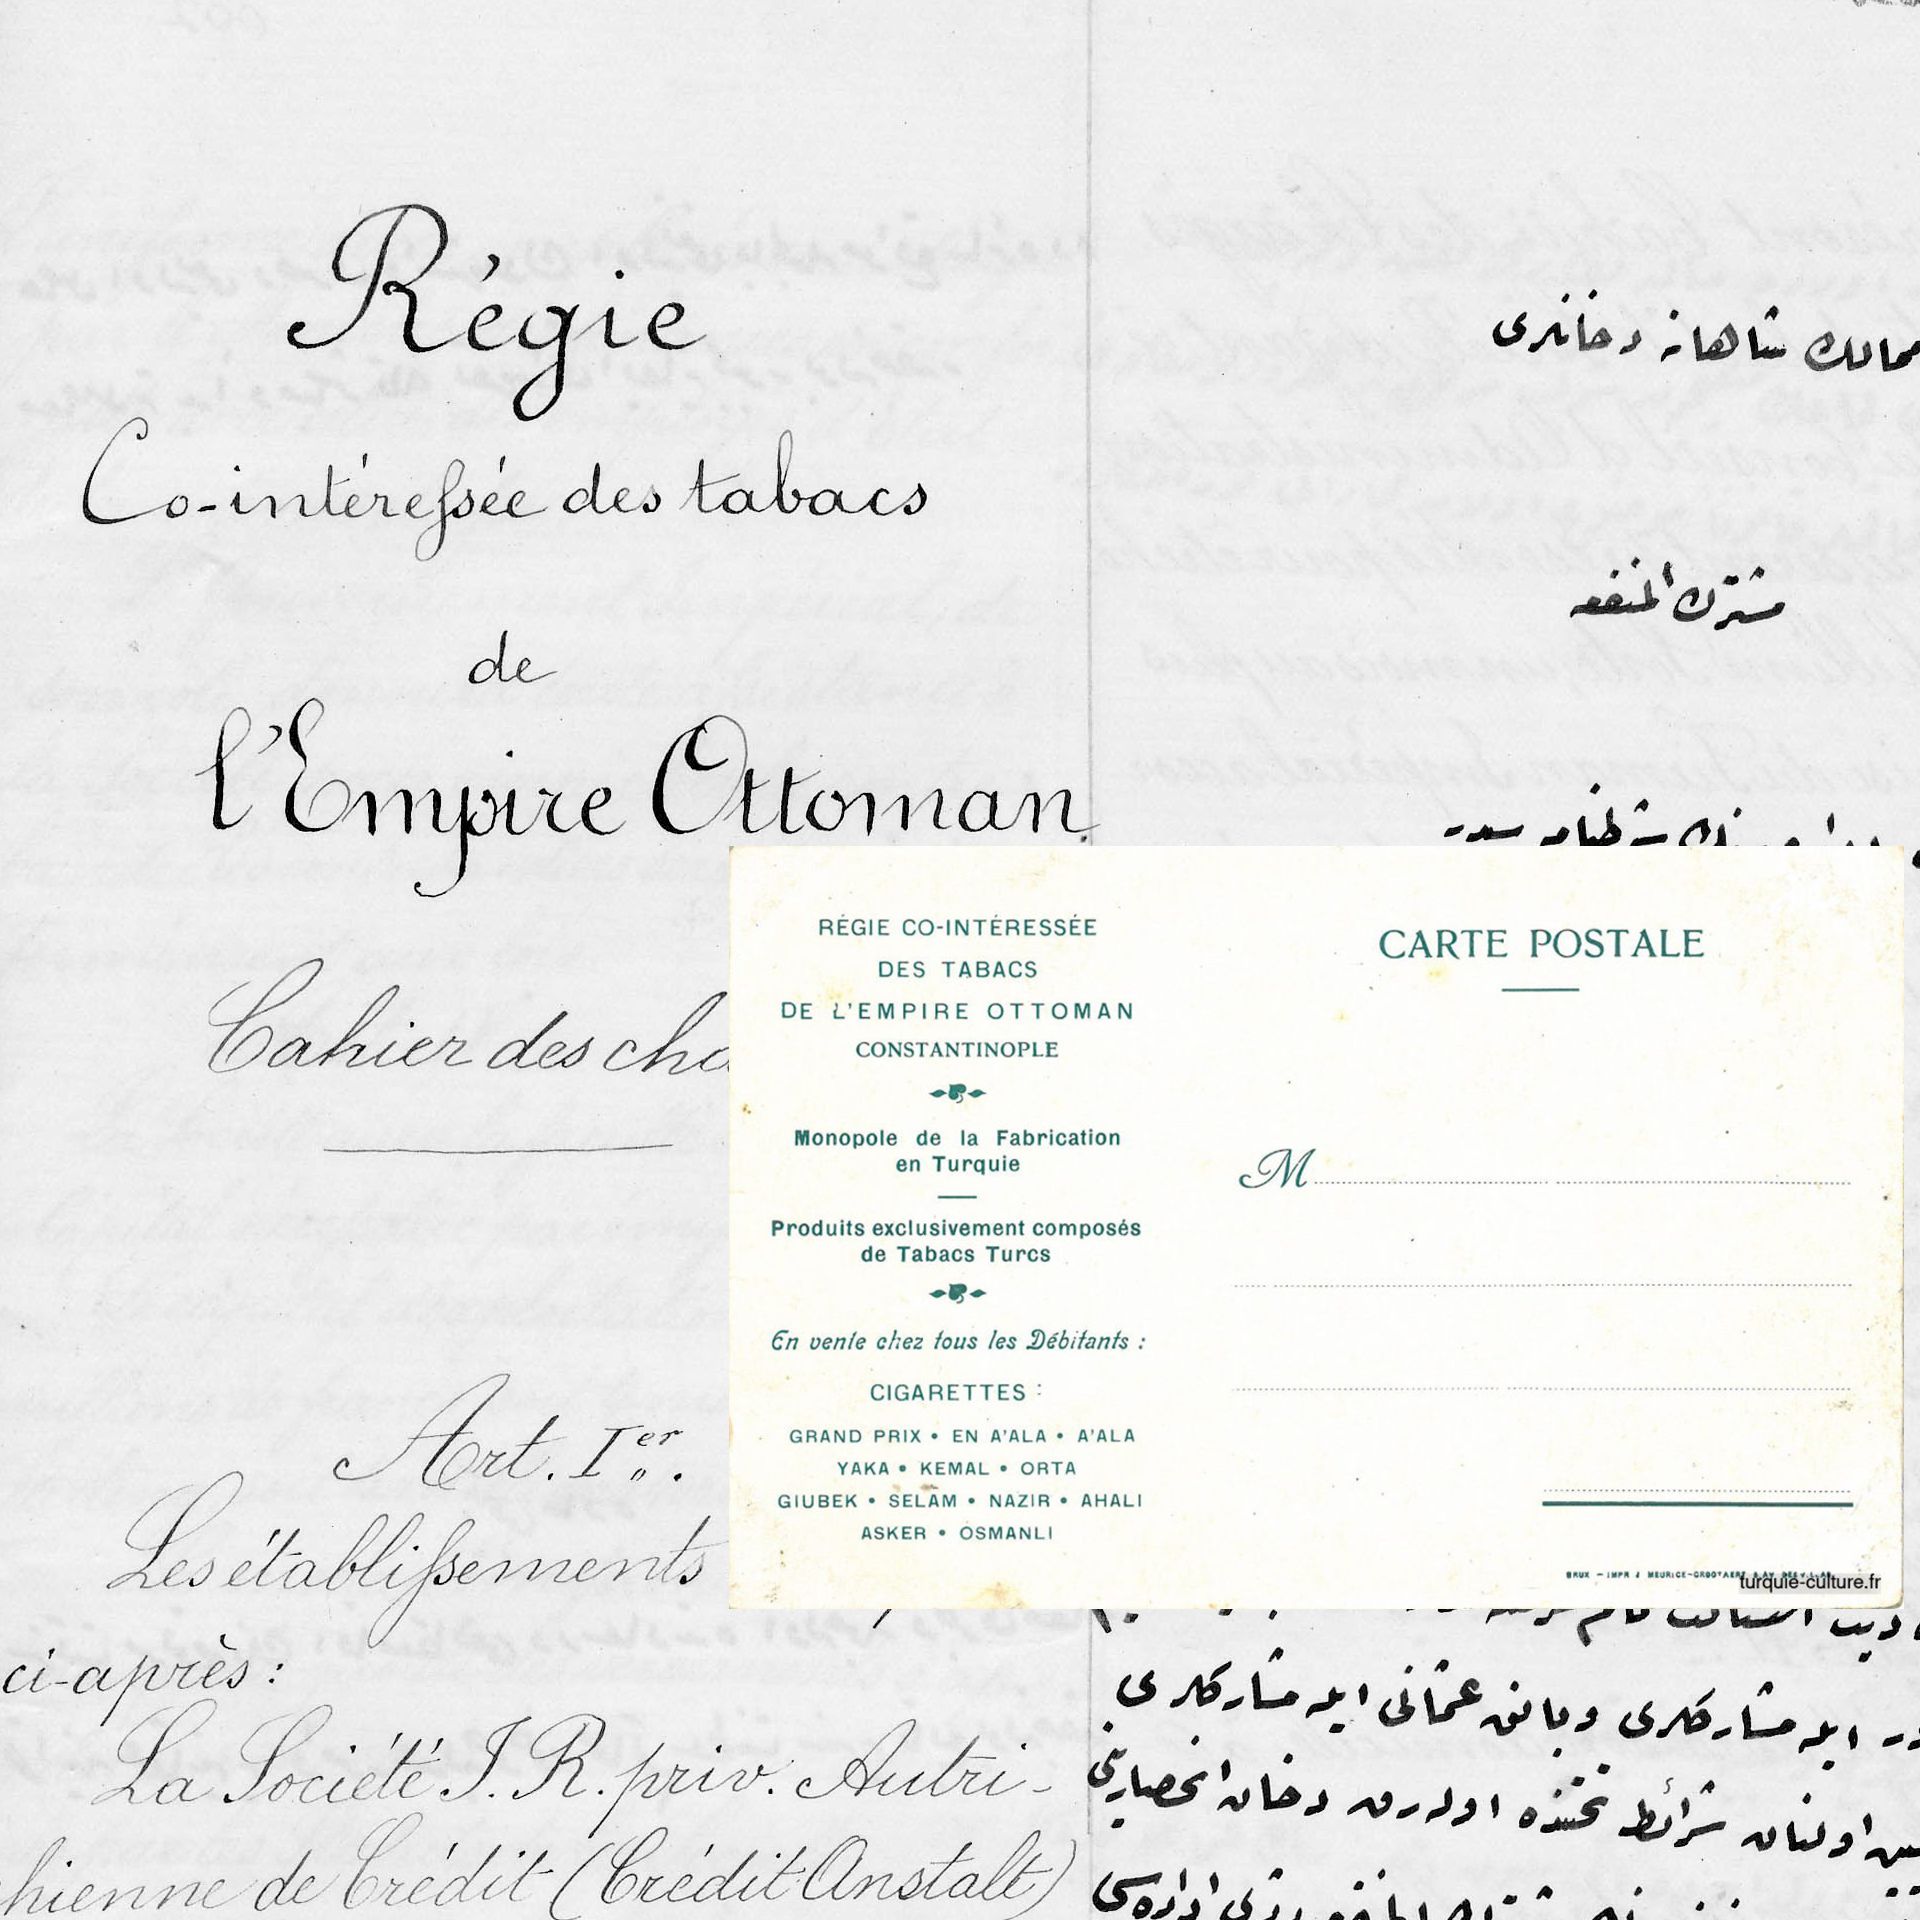 Régie
Co-intéressée des tabacs
de
l'Empire Ottoman
Cahier des cha
Art. Ier.
Les établissements
ci-après :
La Société I. R. priv. Autri-
hienne de Crédit (Crédit Anstalt)
ممالك شاهانه دخانلری
مشترك المنفعه
ایله مشارکلری وبانق عثمانی ایله مشارکلری
اولنان شرائط تحتنده اوله رق دخان انحصارینی
RÉGIE CO-INTÉRESSÉE
DES TABACS
DE L'EMPIRE OTTOMAN
CONSTANTINOPLE
Monopole de la Fabrication
en Turquie
Produits exclusivement composés
de Tabacs Turcs
En vente chez tous les Débitants :
CIGARETTES :
GRAND PRIX • EN A'ALA • A'ALA
YAKA • KEMAL • ORTA
GIUBEK • SELAM • NAZIR • AHALI
ASKER • OSMANLI
CARTE POSTALE
M
BRUX — IMPR J MEURICE-GROOTAERT
turquie-culture.fr